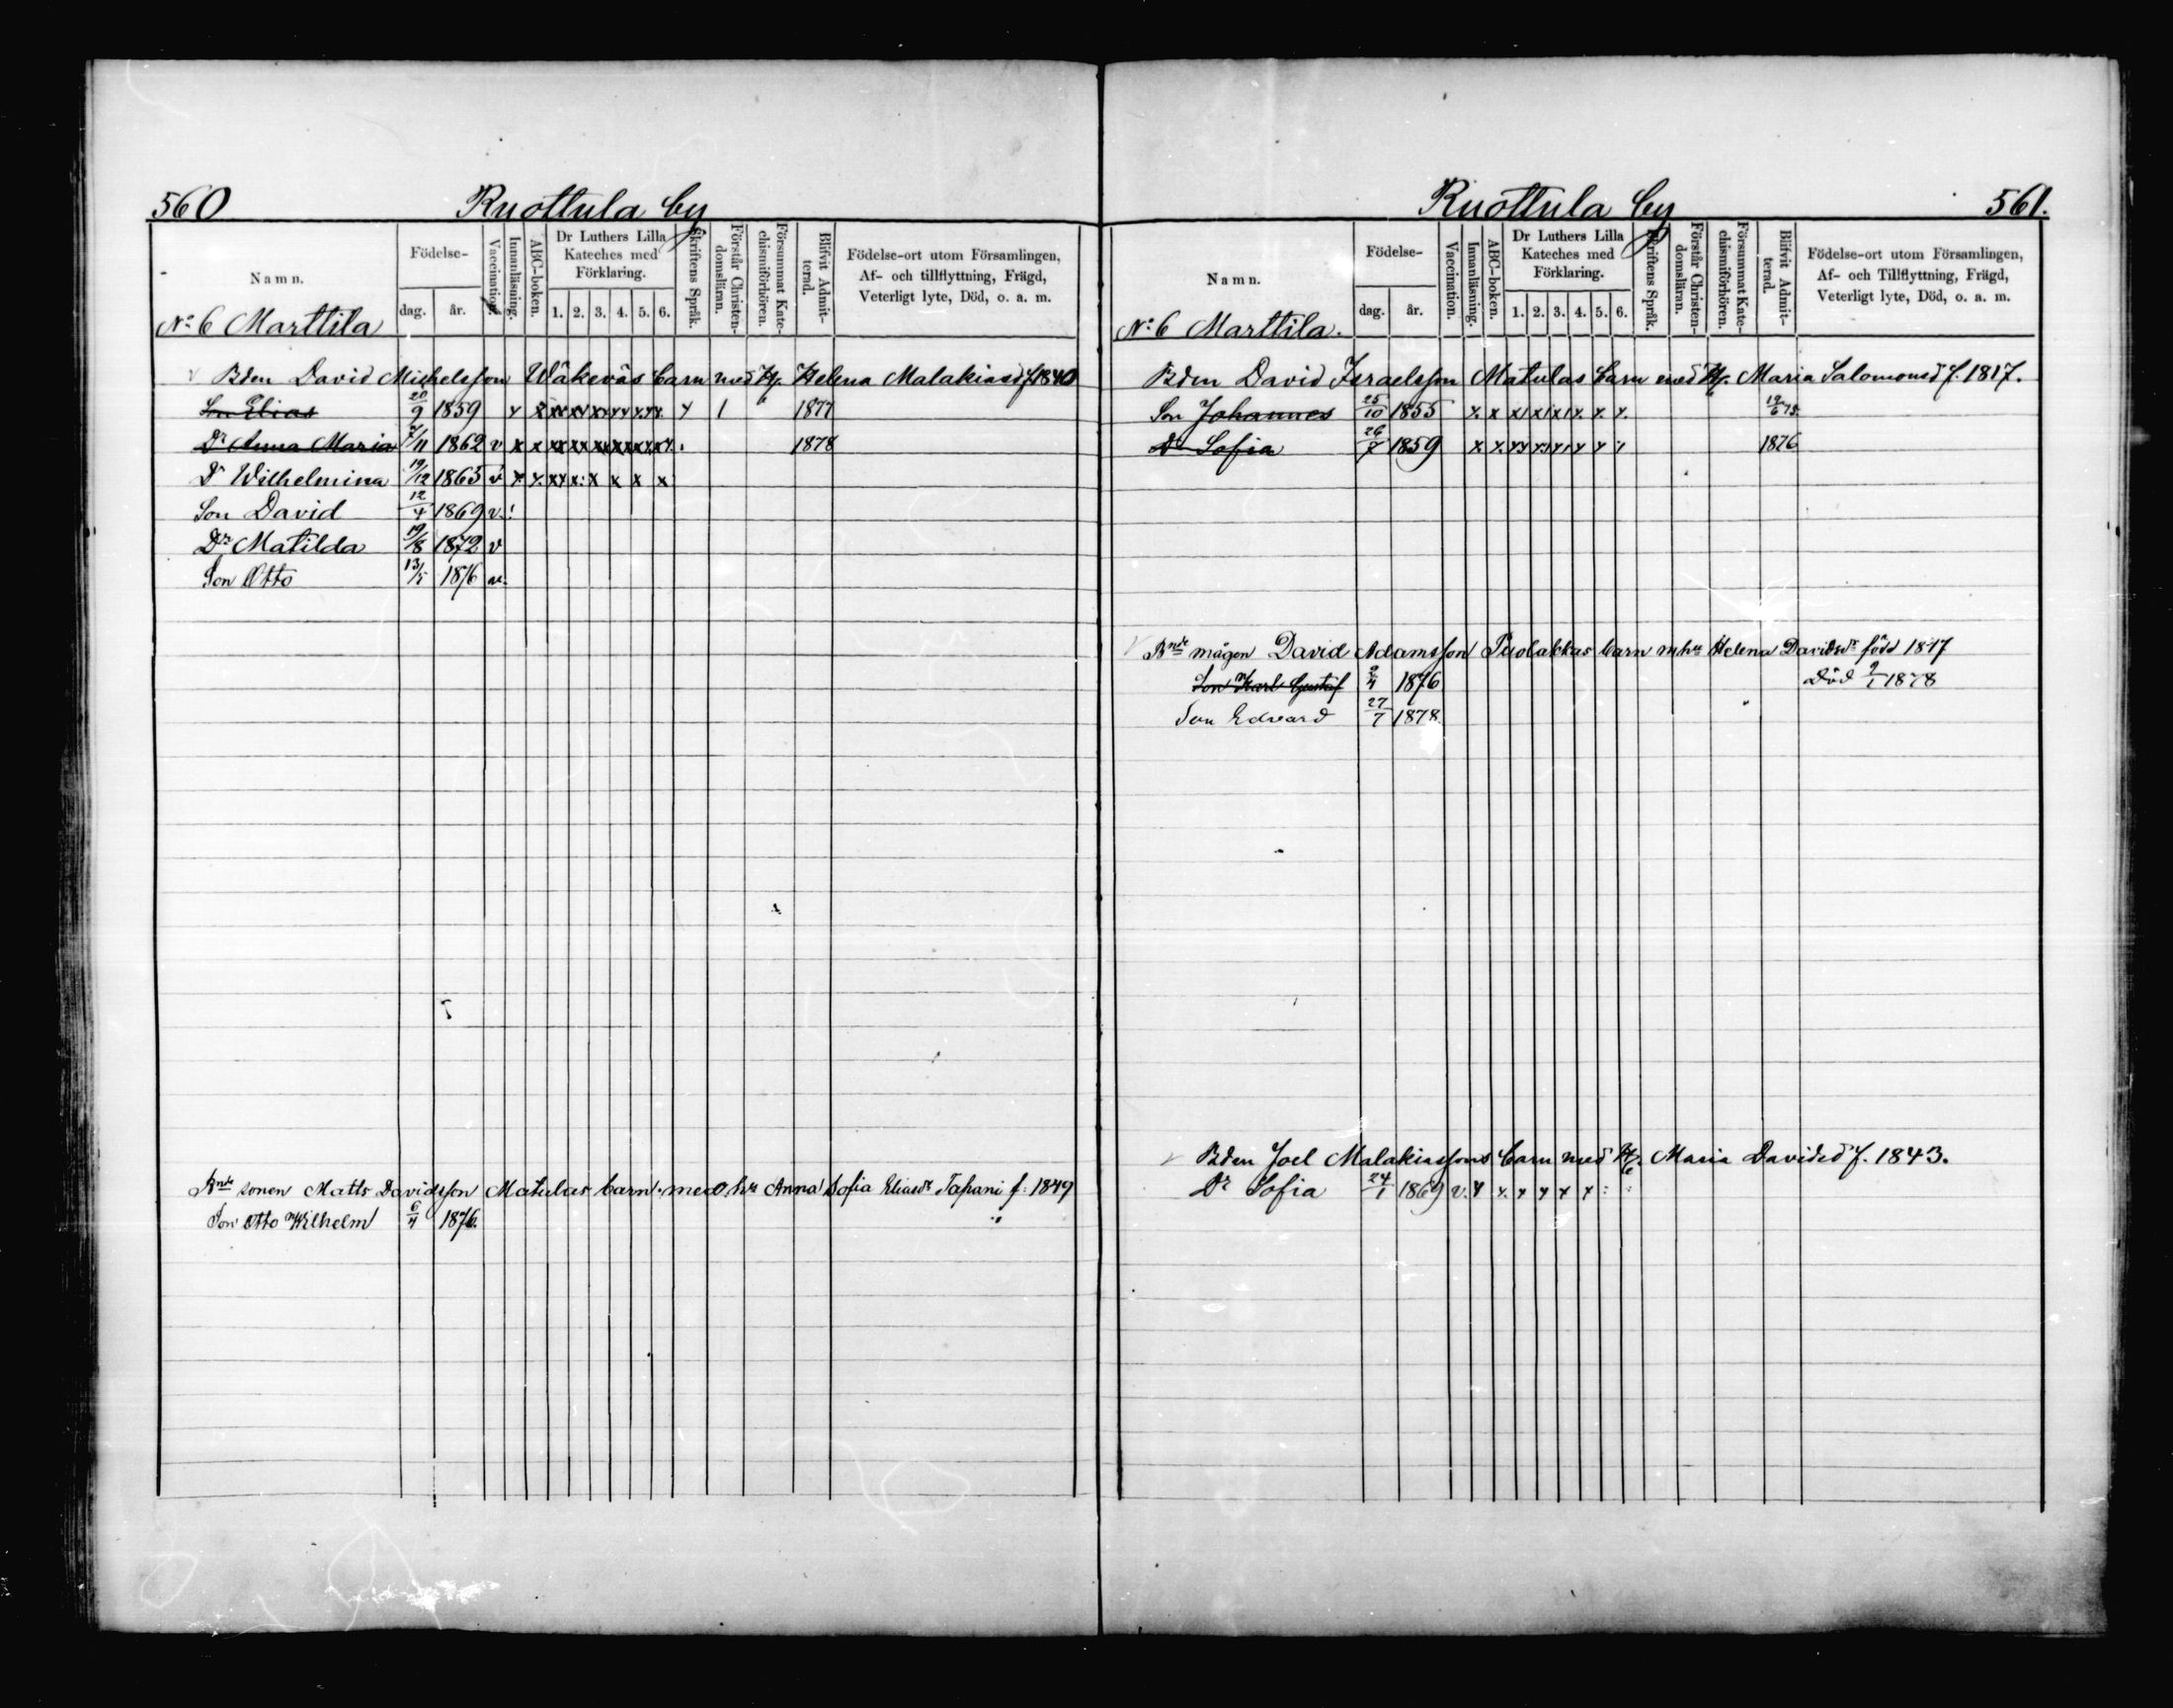 560 Ruottula by
Namn. Födelse- dag. år. Vaccination. Innanläsning. ABC-boken. Dr Luthers Lilla Kateches med Förklaring. 1. 2. 3. 4. 5. 6. Skriftens Språk. Förstår Christendomsläran. Försummat Katechismiförhören. Blifvit Admitterad. Födelse-ort utom Församlingen, Af- och tillflyttning, Frägd, Veterligt lyte, Död, o. a. m.
No 6 Marttila
Bden David Michelsson Wäkeväs barn med H. Helena Malakiasd f 1840
Son Elias 20/9 1859 1877
Dr Anna Maria 7/11 1862 v 1878
Dr Wilhelmina 19/12 1865 v
Son David 12/4 1869 v.
Dr Matilda 19/8 1872 v
Son Otto 13/5 1876
Bnde sonen Matts Davidsson Matulas barn med hu Anna Sofia Eliasdr Tapani f. 1849
Son Otto Wilhelm 6/4 1876.
Ruottula by 561.
Namn. Födelse- dag. år. Vaccination. Innanläsning. ABC-boken. Dr Luthers Lilla Kateches med Förklaring. 1. 2. 3. 4. 5. 6. Skriftens Språk. Förstår Christendomsläran. Försummat Katechismiförhören. Blifvit Admitterad. Födelse-ort utom Församlingen, Af- och Tillflyttning, Frägd, Veterligt lyte, Död, o. a. m.
No 6 Marttila.
Bden David Israelsson Matulas barn med H. Maria Salomonsd f. 1817.
Son Johannes 25/10 1855
Dr Sofia 1859 1876
Bnde mågen David Adamsson Puolakkas barn m hu Helena Davidsdr född 1847
Son Karl Gustaf 2/4 1876 Död 2/1 1878
Son Edvard 27/7 1878.
Bden Joel Malakiassons barn med H. Maria Davidsd f. 1843.
Dr Sofia 24/1 1869 v.